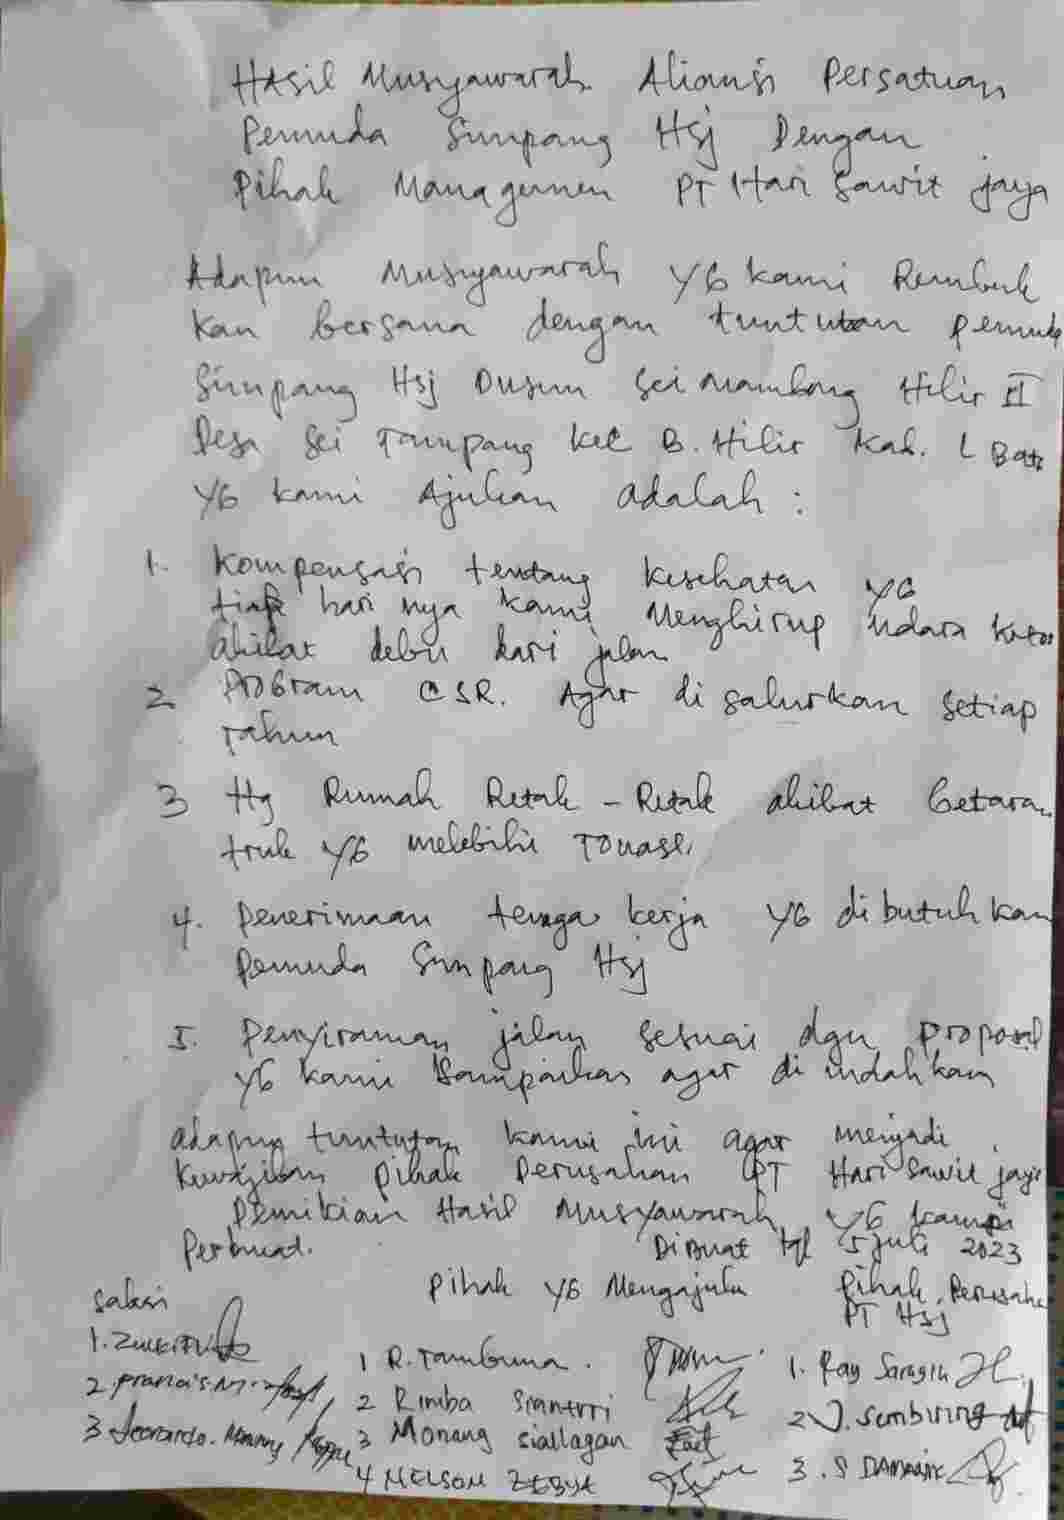 Hasil Musyawarah Aliansi Persatuan
Pemuda Simpang Hsj Dengan
Pihak Managemen PT Hari Sawit jaya
Adapun Musyawarah YG kami Rembuk
kan bersama dengan tuntutan pemuda
Simpang Hsj Dusun Sei Mambang Hilir II
Desa Sei Tampang kec B. Hilir Kab. L Batu
YG kami Ajukan adalah :
1. Kompensasi tentang kesehatan YG
tiap hari nya kami Menghirup udara kotor
akibat debu dari jalan
2 Program CSR. Agar di salurkan setiap
tahun
3 Hg Rumah Retak - Retak akibat Getaran
truk YG melebihi Tonase.
4. Penerimaan tenaga kerja YG dibutuhkan
Pemuda Simpang Hsj
5. Penyiraman jalan sesuai dgn proposal
YG kami sampaikan agar di indahkan
adapun tuntutan kami ini agar menjadi
kewajiban pihak Perusahan PT Hari Sawit jaya
Demikian Hasil Musyawarah YG kami
Perbuat.
DiBuat tgl 5 juli 2023
Saksi
Pihak YG Mengajukan
Pihak Perusahan
PT Hsj
1. Zulkifli
2 Francis. M.
3 Leonardo.
1 R. Tambuna.
2 Rimba Sianturi
3 Monang Siallagan
4 NELSON
1. Ray Saragih
2 J. Sembiring
3. S DAMANIK